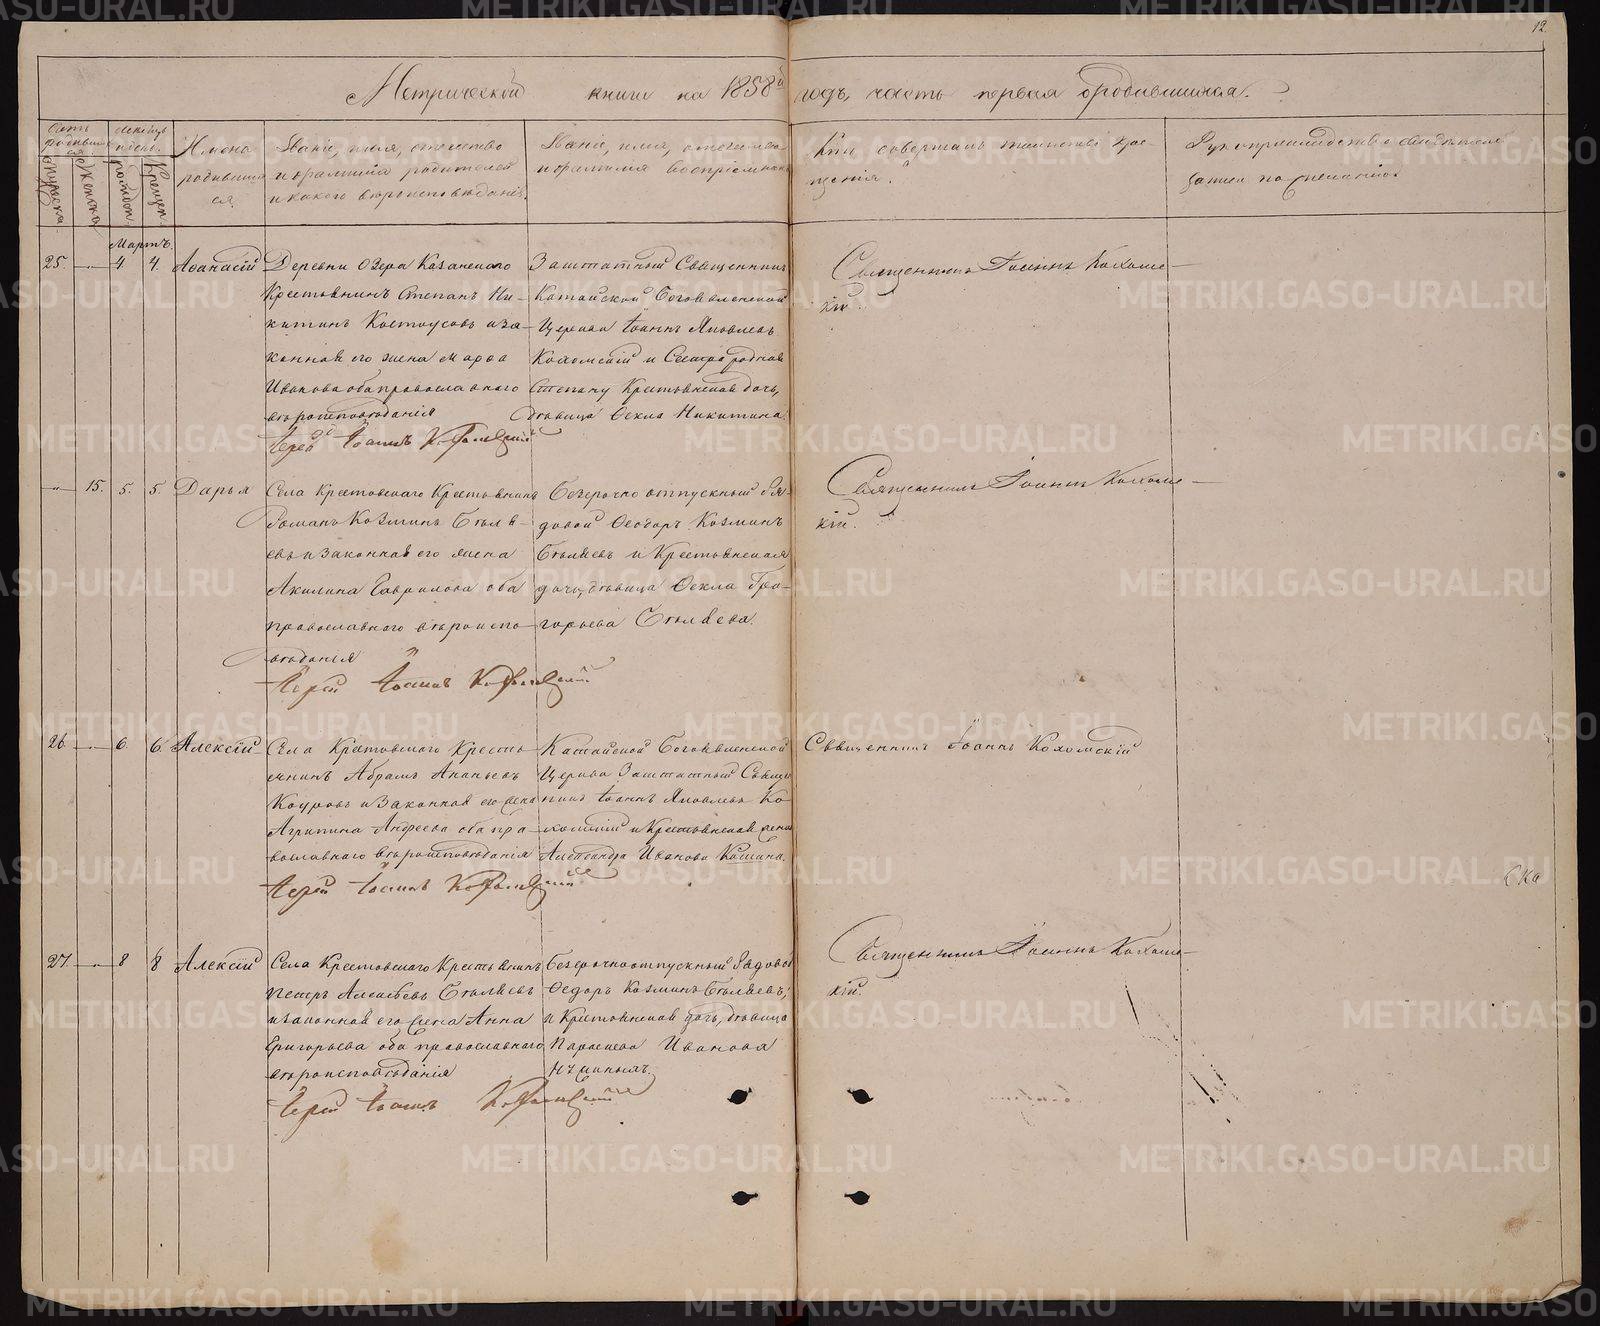 12.
Метрической книги на 1858й годъ, часть первая о родившихся.
Счетъ родившихся
Мужеска
Женска
Мѣсяцъ и день
рожден.
Крещен.
Имена родившихся
Званіе, имя, отечество и фамилія родителей и какого вѣроисповѣданія.
Званіе, имя, отечество и фамилія воспріемниковъ
Кто совершалъ таинство крещенія.
Рукоприкладство свидѣтелей записи по желанію
Мартъ.
25. 4. 4. Аѳанасій
Деревни Озера Казанскаго
Крестьянинъ Степанъ Ни-
китинъ Костоусовъ и за-
конная его жена Марѳа
Иванова оба православнаго
вѣроисповѣданія
Заштатный Священникъ
Катайской Богоявленской
Церкви Іоаннъ Яковлевъ
Кохомскій и Сестра родная
Степану Крестьянская дочь,
дѣвица Ѳекла Никитина.
Священникъ Іоаннъ Кохомс-
кій.
Іерей Іоаннъ
15. 5. 5. Дарья
Села Крестовскаго Крестьянинъ
Романъ Козминъ Бѣля-
евъ и законная его жена
Акилина Гаврилова оба
православнаго вѣроиспо-
вѣданья
Безсрочно отпускный Ря-
довой Ѳеодоръ Козминъ
Бѣляевъ и Крестьянская
дочь, дѣвица Ѳекла Гри-
горьева Бѣляева.
Священникъ Іоаннъ Кохомс-
кій.
Іерей Іоаннъ
26. 6. 6. Алексій
Села Крестовскаго Кресть-
янинъ Абрамъ Ананьевъ
Коуровъ и Законная его жена
Агрипина Андреева оба пра-
вославнаго вѣроисповѣданія
Катайской Богоявленской
Церкви Заштатный Священ-
никъ Іоаннъ Яковлевъ Ко-
хомскій и Крестьянская жена
Александра Иванова
Священникъ Іоаннъ Кохомскій
Іерей Іоаннъ
27. 8 8 Алексій
Села Крестовскаго Крестьянинъ
Петръ Алексѣевъ Бѣляевъ
и законная его жена Анна
Григорьева оба православнаго
вѣроисповѣданія
Безсрочноотпускный Рядовой
Ѳедоръ Козминъ Бѣляевъ,
и Крестьянская дочь, дѣвица
Парасковья Иванова
Священникъ Іоаннъ Кохомс-
кій.
Іерей Іоаннъ
METRIKI.GASO-URAL.RU